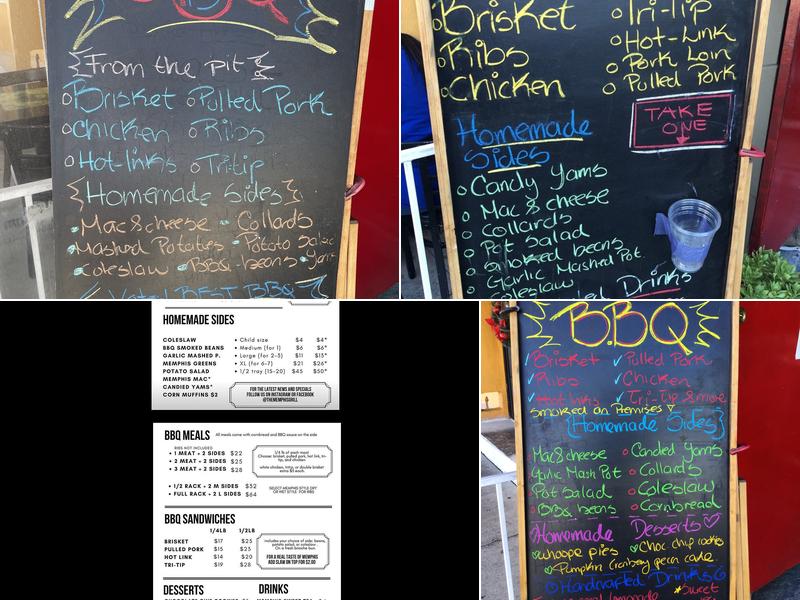 BBQ
From the pit
Brisket Pulled Pork
Chicken Ribs
Hot-links Tri-tip
Homemade Sides
Mac & cheese Collards
Mashed Potatoes Potato Salad
Coleslaw BBQ-beans Yams
Voted BEST BBQ
Brisket Tri-Tip
Ribs Hot-Link
Chicken Pork Loin
Pulled Pork
TAKE
ONE
Homemade
Sides
Candy Yams
Mac & cheese
Collards
Pot Salad
Smoked beans
Garlic Mashed Pot
Coleslaw
Drinks
HOMEMADE SIDES
COLESLAW • Child size $4 $4*
BBQ SMOKED BEANS • Medium (for 1) $6 $6*
GARLIC MASHED P. • Large (for 2-5) $11 $13*
MEMPHIS GREENS • XL (for 6-7) $21 $26*
POTATO SALAD • 1/2 tray (15-20) $45 $50*
MEMPHIS MAC*
CANDIED YAMS*
CORN MUFFINS $2
FOR THE LATEST NEWS AND SPECIALS
FOLLOW US ON INSTAGRAM OR FACEBOOK
@THEMEMPHISGRILL
BBQ MEALS All meals come with cornbread and BBQ sauce on the side
RIBS NOT INCLUDED
• 1 MEAT + 2 SIDES $22
• 2 MEAT + 2 SIDES $25
• 3 MEAT + 2 SIDES $28
1/4 lb of each meat
Choose: brisket, pulled pork, hot link, tri-
tip, and chicken
white chicken, tritip, or double brisket
extra $3 each.
• 1/2 RACK + 2 M SIDES $32
• FULL RACK + 2 L SIDES $64
SELECT MEMPHIS STYLE DRY
OR WET STYLE FOR RIBS
BBQ SANDWICHES
1/4LB 1/2LB
BRISKET $17 $25
PULLED PORK $15 $25
HOT LINK $14 $20
TRI-TIP $19 $28
includes your choice of side: beans,
potato salad, or coleslaw.
On a fresh brioche bun.
FOR A REAL TASTE OF MEMPHIS
ADD SLAW ON TOP FOR $2.00
DESSERTS DRINKS
BBQ
Brisket Pulled Pork
Ribs Chicken
Hot links Tri-Tip & more
Smoked on Premises
Homemade Sides
Mac & cheese Candied Yams
Garlic Mash Pot Collards
Pot Salad Coleslaw
BBQ beans Cornbread
Homemade Desserts
Whoope pies Choc chip cookies
Pumpkin Cranberry pecan cake
Handcrafted Drinks
lemonade Sweet